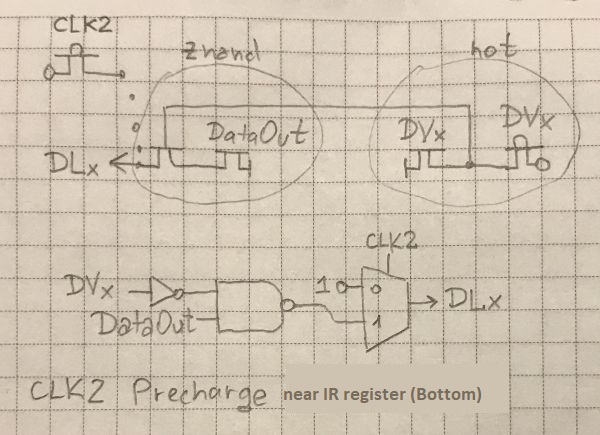 CLK2
znand
not
DataOut
DVx
DVx
DLx
CLK2
DVx
1
0
DLx
DataOut
1
CLK2 Precharge near IR register (Bottom)